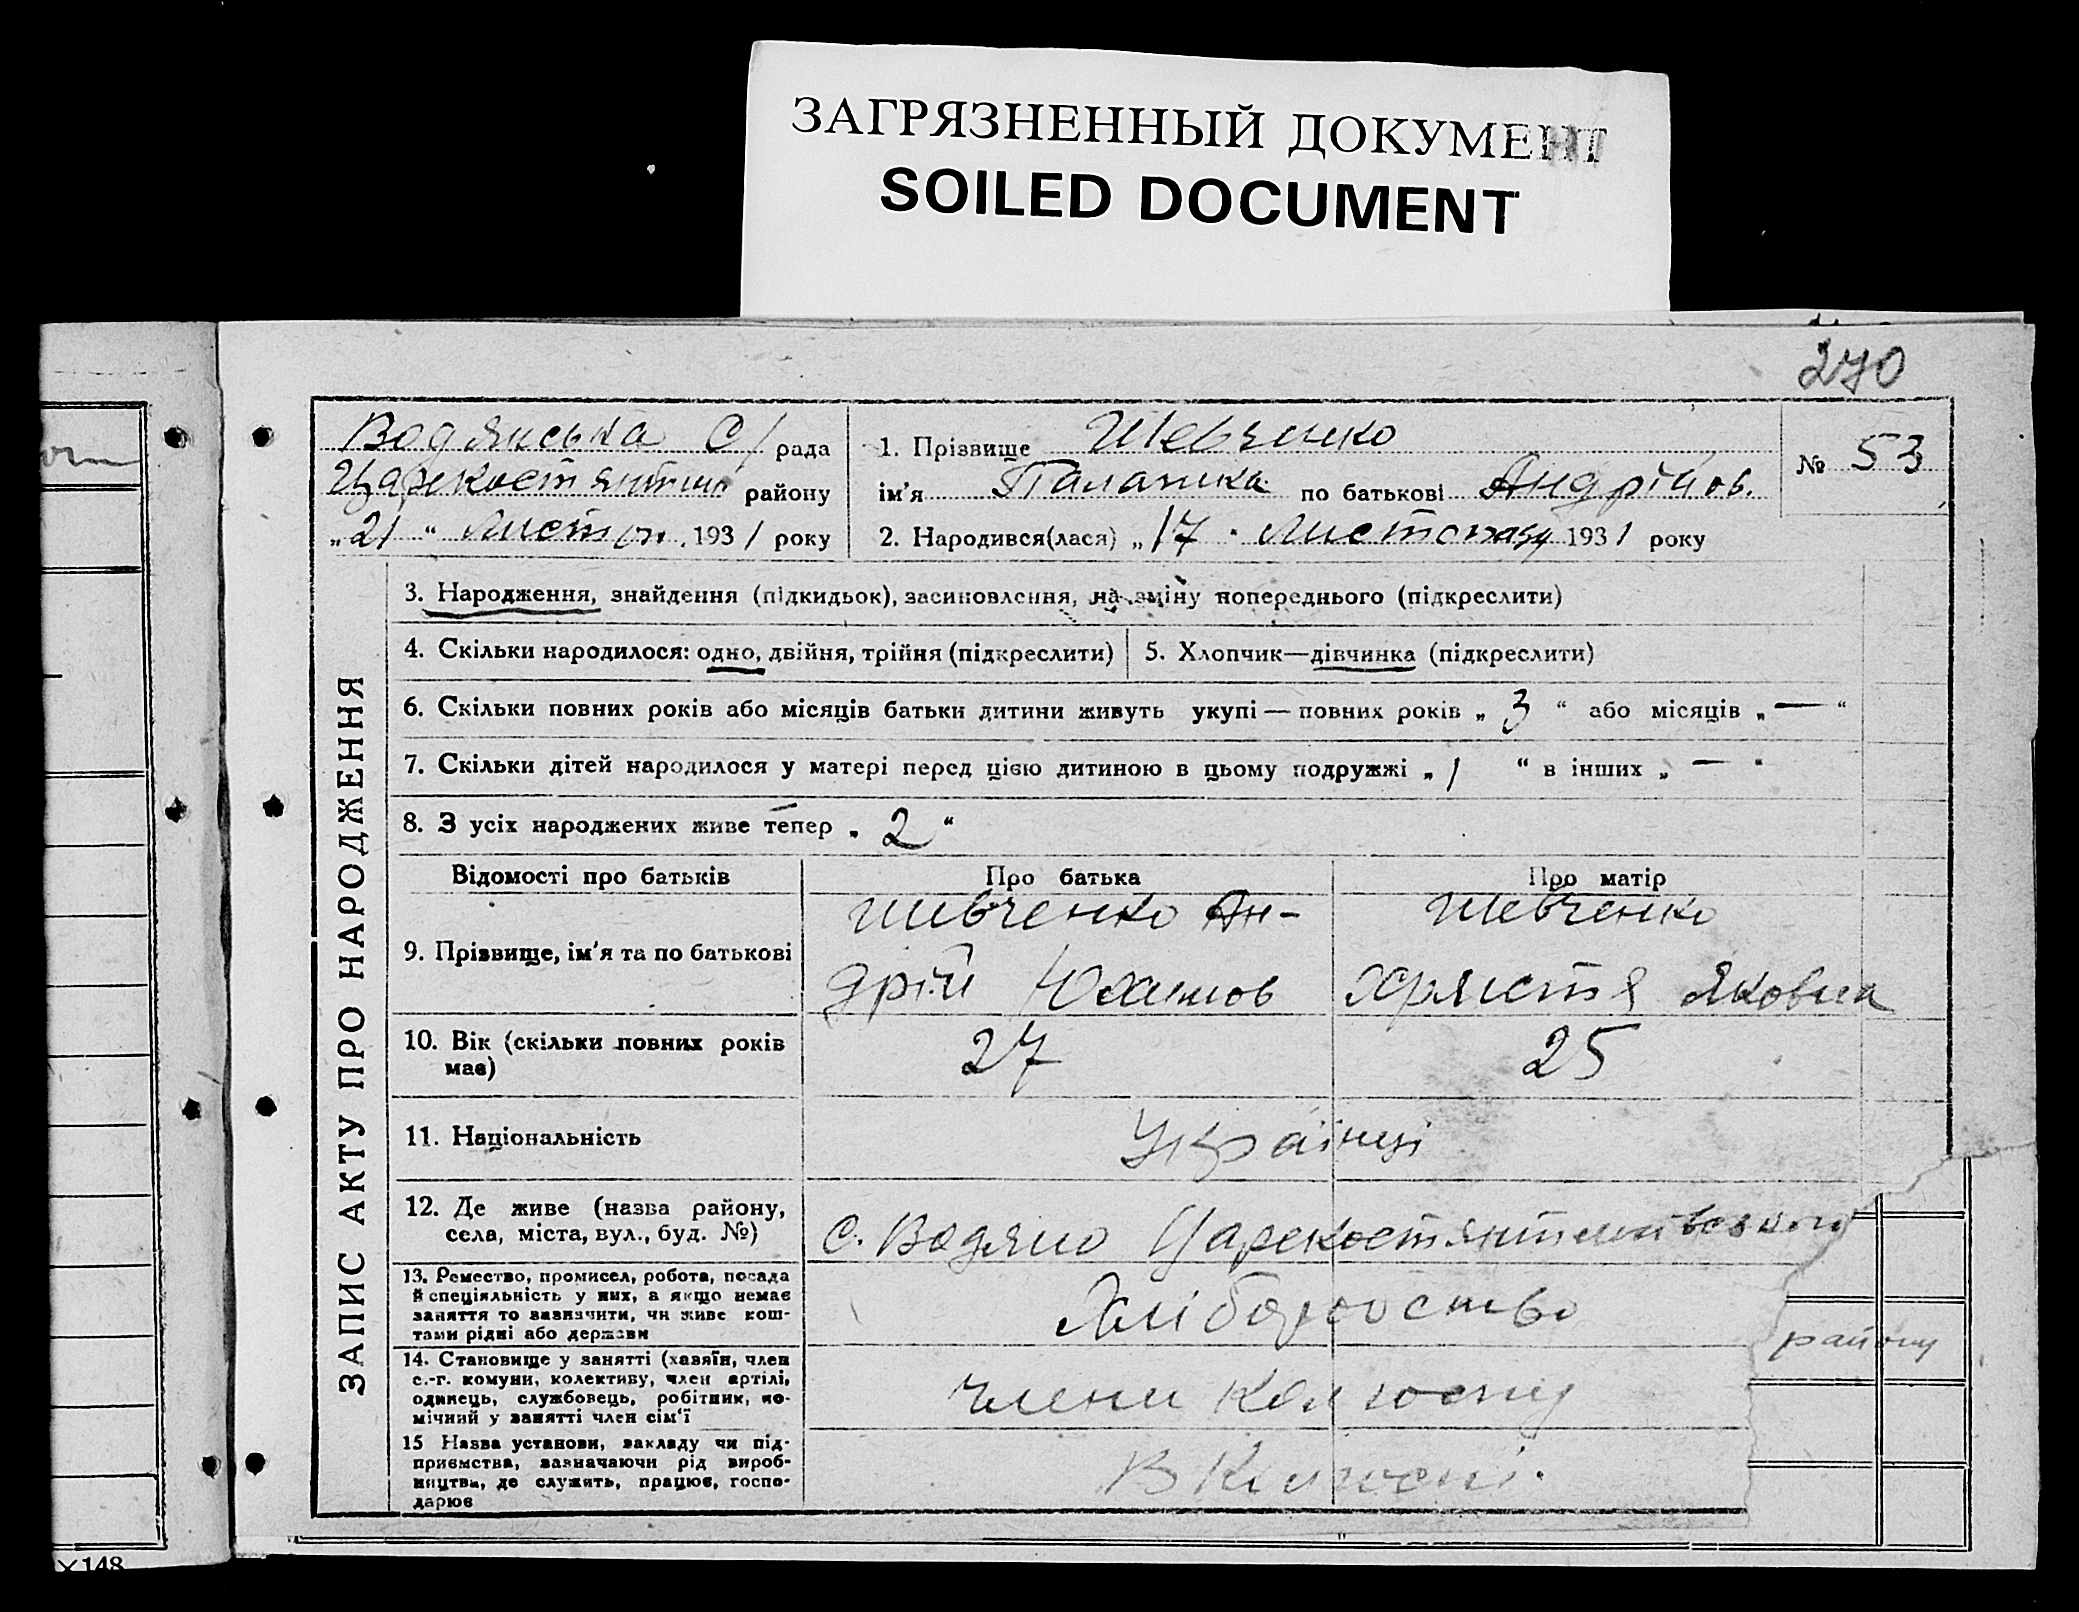 ЗАГРЯЗНЕННЫЙ ДОКУМЕНТ
SOILED DOCUMENT
270
Водянська С/ рада
Царекостянтин району
„21“ Листоп. 1931 року
1. Прізвище Шевченко
ім'я Палажка по батькові Андрійов.
2. Народився(лася) „17 Листопаду 1931 року
№ 53
ЗАПИС АКТУ ПРО НАРОДЖЕННЯ
3. Народження, знайдення (підкидьок), засиновлення, на зміну попереднього (підкреслити)
4. Скільки народилося: одно, двійня, трійня (підкреслити)
5. Хлопчик—дівчинка (підкреслити)
6. Скільки повних років або місяців батьки дитини живуть укупі — повних років „ 3 “ або місяців „ — “
7. Скільки дітей народилося у матері перед цією дитиною в цьому подружжі „ 1 “ в інших „ — “
8. З усіх народжених живе тепер „ 2 “
Відомості про батьків
Про батька
Про матір
9. Прізвище, ім'я та по батькові
Шивченко Ан-
дрій Юхимов
Шевченко
Христя Яковна
10. Вік (скільки повних років
має)
27
25
11. Національність
Українці
12. Де живе (назва району,
села, міста, вул., буд. №)
с. Водяно Царекостянтинивського
району
13. Ремество, промисел, робота, посада
й спеціяльність у них, а якщо немає
заняття то зазначити, чи живе кош-
тами рідні або держави
Хліборобство
14. Становище у занятті (хазяїн, член
с.-г. комуни, колективу, член артілі,
одинець, службовець, робітник, по-
мічний у занятті член сім'ї
члени колгоспу
15 Назва установи, закладу чи під-
приємства, зазначаючи рід вироб-
ництва, де служить, працює, госпо-
дарює
В Колгоспі.
148